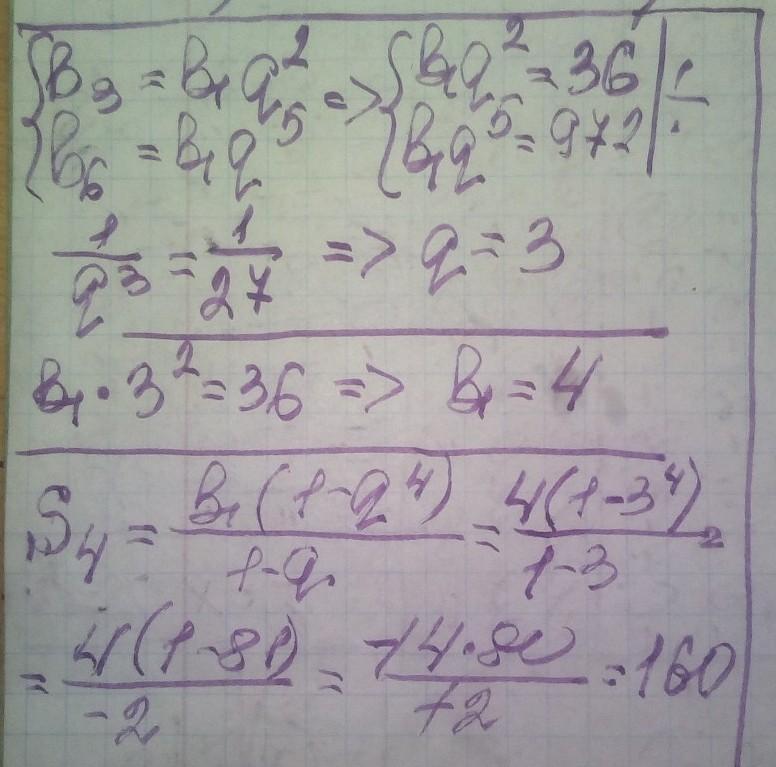 {b₃ = b₁q² => {b₁q² = 36 | :
{b₆ = b₁q⁵ {b₁q⁵ = 972 |
1/q³ = 1/27 => q = 3
b₁·3² = 36 => b₁ = 4
S₄ = b₁(1-q⁴)/1-q = 4(1-3⁴)/1-3 =
= 4(1-81)/-2 = -4·80/-2 = 160